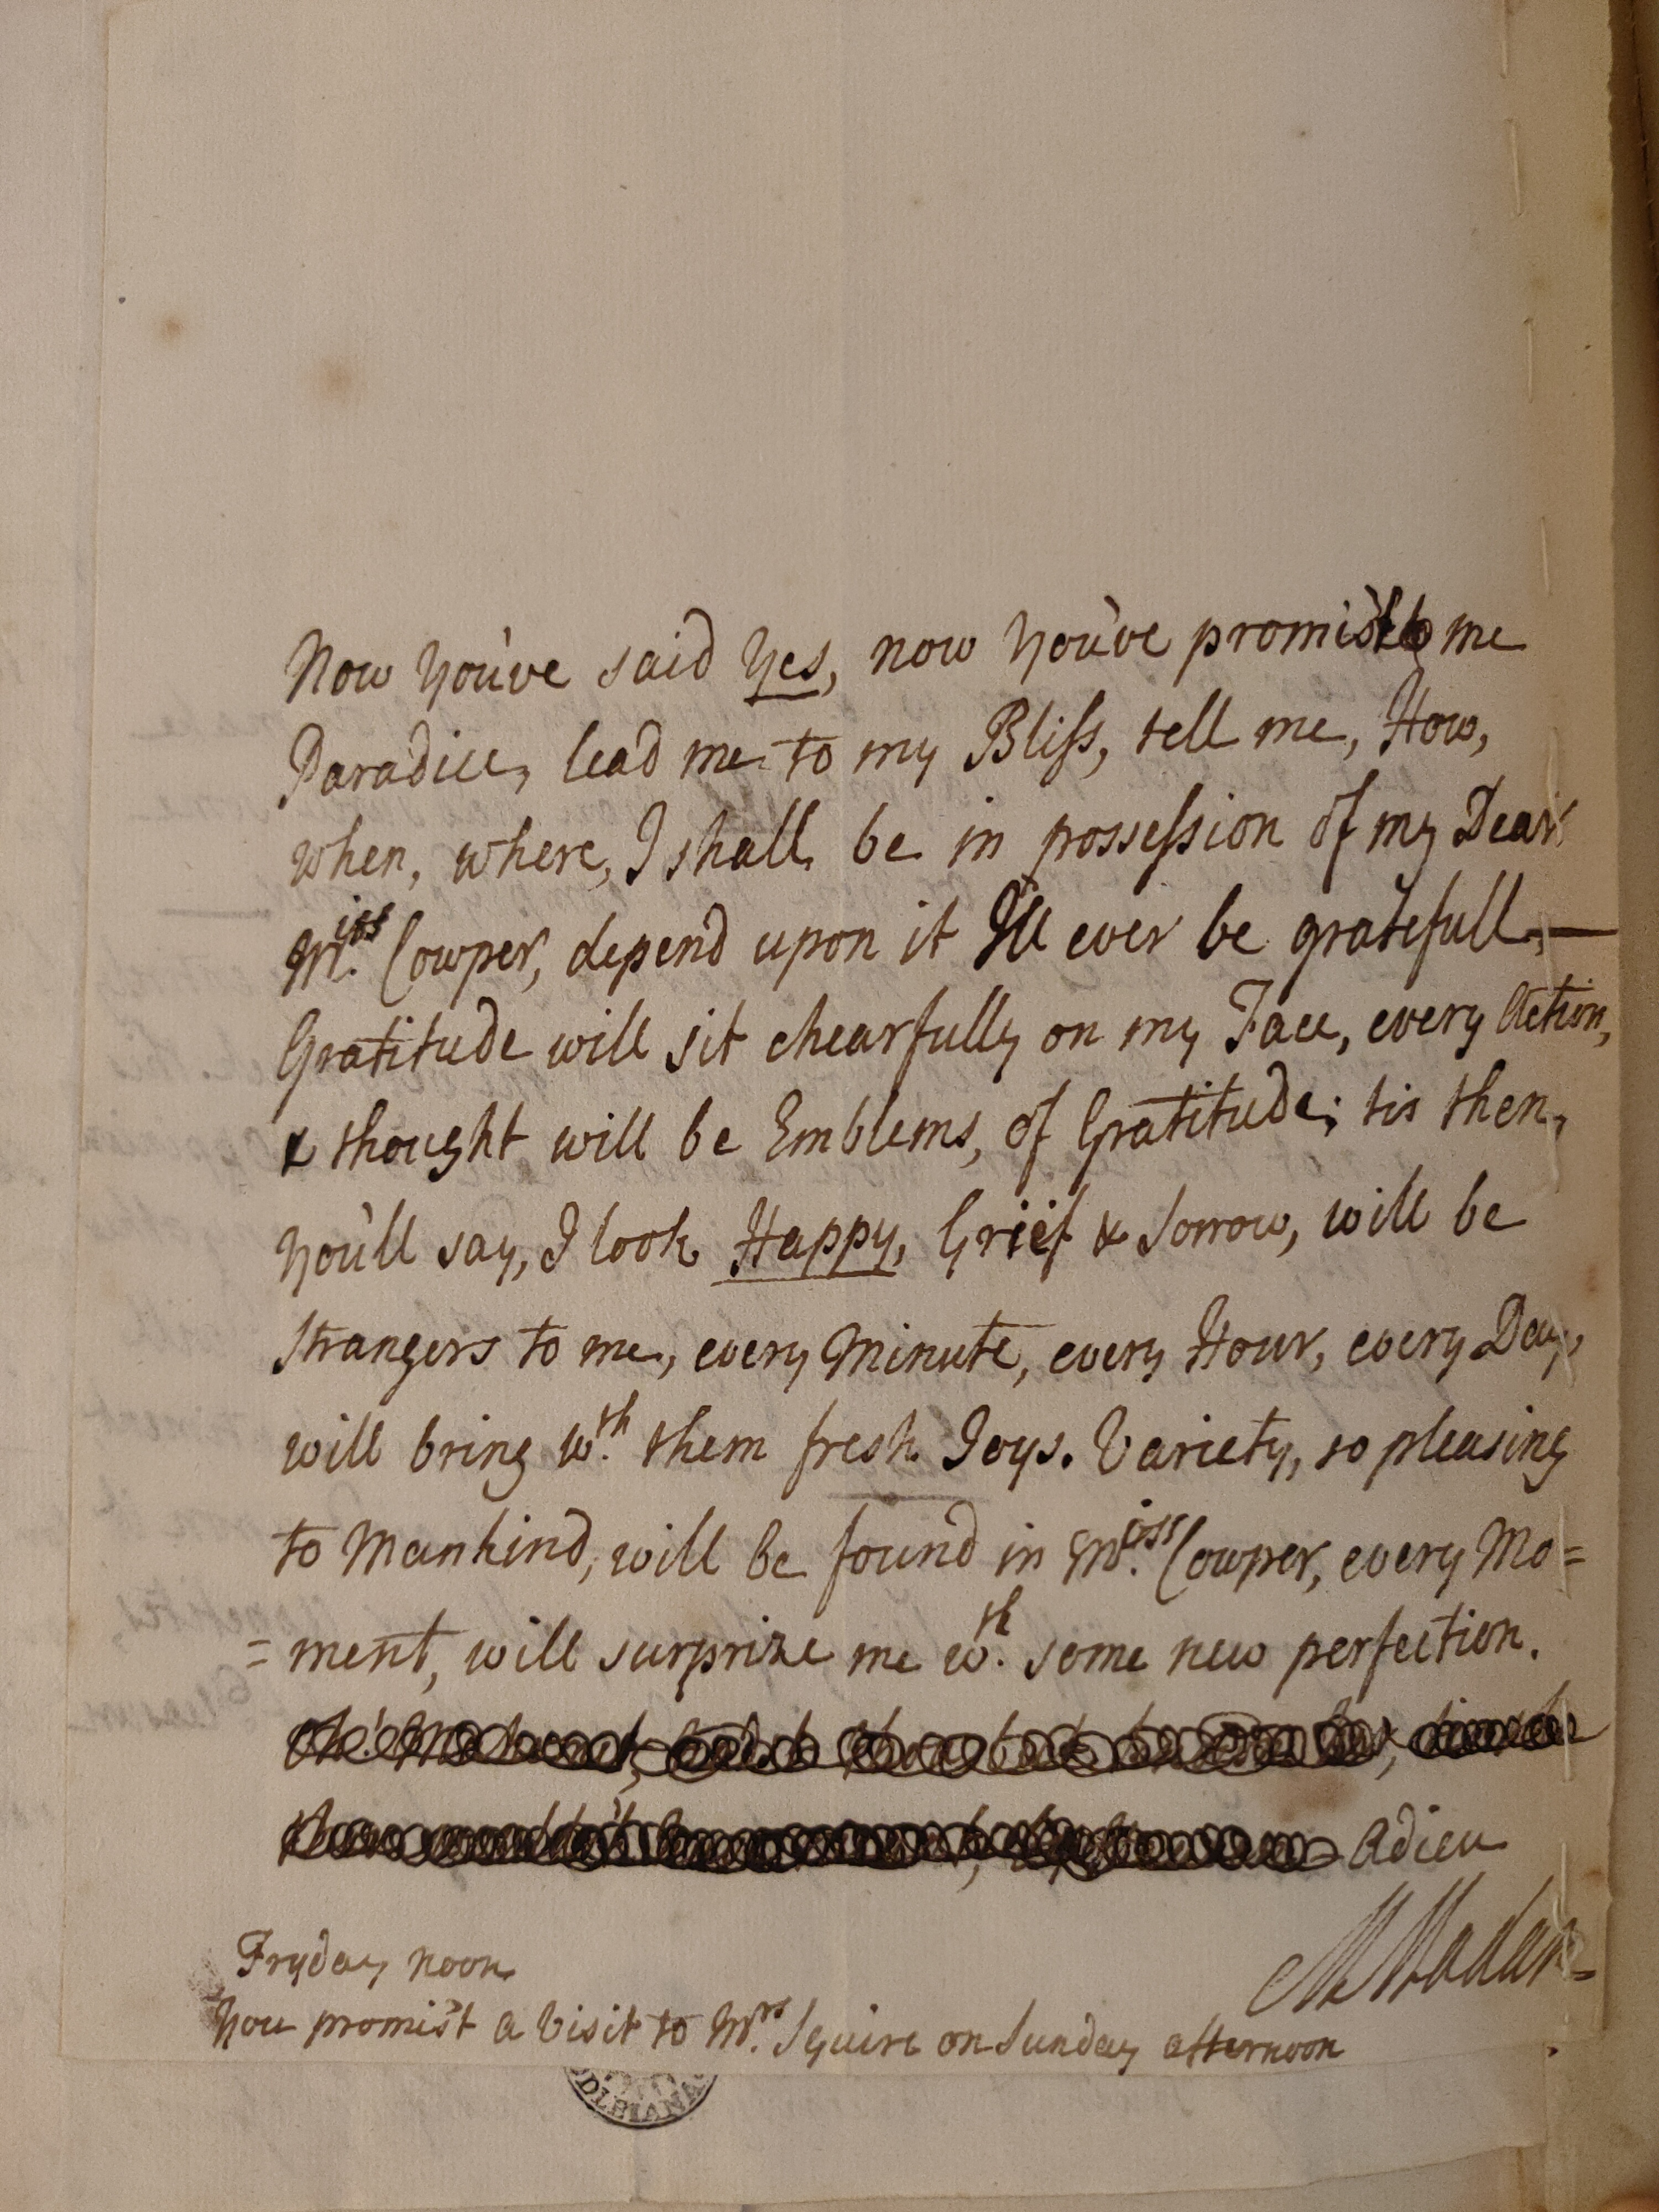 Now you've said Yes, now you've promis't me
Paradice, lead me to my Bliss, tell me, How,
when, where, I shall be in possession of my Dear
Miss Cowper, depend upon it I'll ever be gratefull,—
Gratitude will sit chearfully on my Face, every Action,
& thought will be Emblems, of Gratitude; tis then,
you'll say, I look Happy, Grief & Sorrow, will be
strangers to me, every Minute, every Hour, every Day,
will bring wth. them fresh Joys. Variety, so pleasing
to Mankind, will be found in Miss Cowper, every Mo=
=ment, will surprize me wth. some new perfection.
Adieu
MMadan
Fryday noon
You promis't a Visit to Mrs. Squire on Sunday afternoon
DLEIANA